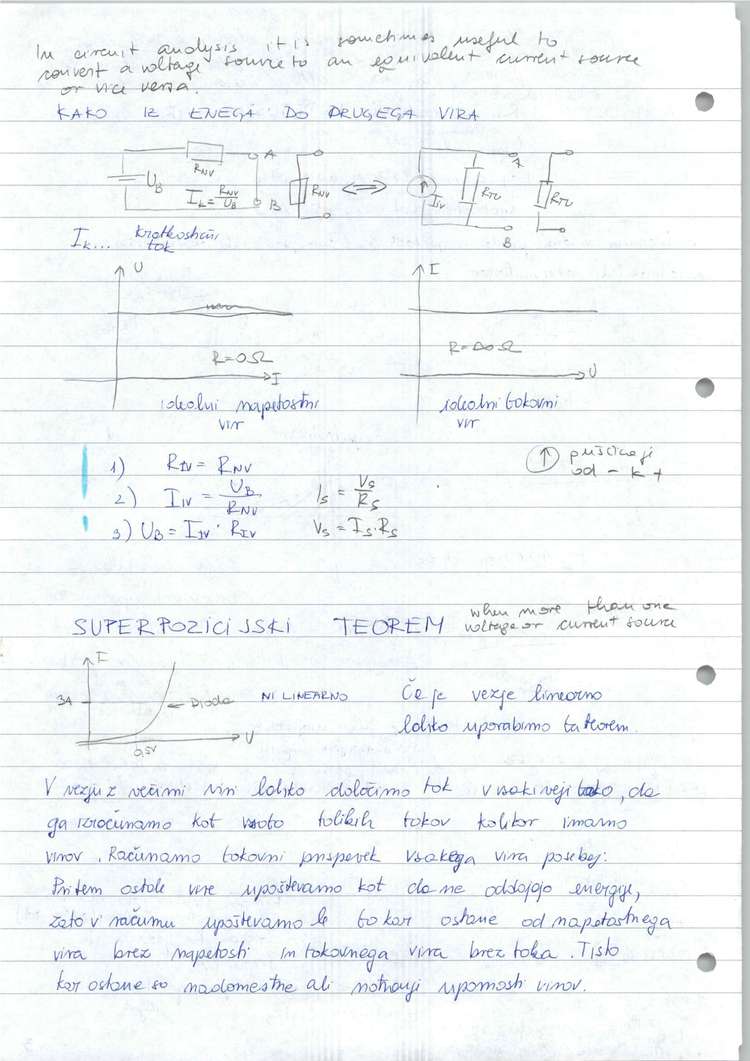 In circuit analysis it is sometimes useful to
convert a voltage source to an equivalent current source
or vice versa.
KAKO IZ ENEGA DO DRUGEGA VIRA
RNV A
UB Ik = RNV/UB B RNV ⟺ IIV RIV A RIV
B
Ik... kratkostični
tok
U I
R = 0Ω R = ∞Ω
I U
idealni napetostni idealni tokovni
vir vir
1) RIV = RNV ↑ puščica gi
od - k +
2) IIV = UB/RNV Is = Vs/Rs
3) UB = IIV · RIV Vs = Is·Rs
when more than one
SUPERPOZICIJSKI TEOREM voltage or current source
I
3A ← Dioda NI LINEARNO Če je vezje linearno
lahko uporabimo ta teorem.
0,5V U
V vezju z večimi viri lahko določimo tok v vsaki veji tako, da
ga izračunamo kot vsoto tolikih tokov kolikor imamo
virov. Računamo tokovni prispevek vsakega vira posebej.
Pri tem ostale vire upoštevamo kot da ne oddajajo energije,
zato v računu upoštevamo le to kar ostane od napetostnega
vira brez napetosti in tokovnega vira brez toka. Tisto
kar ostane so nadomestne ali notranji upornosti virov.